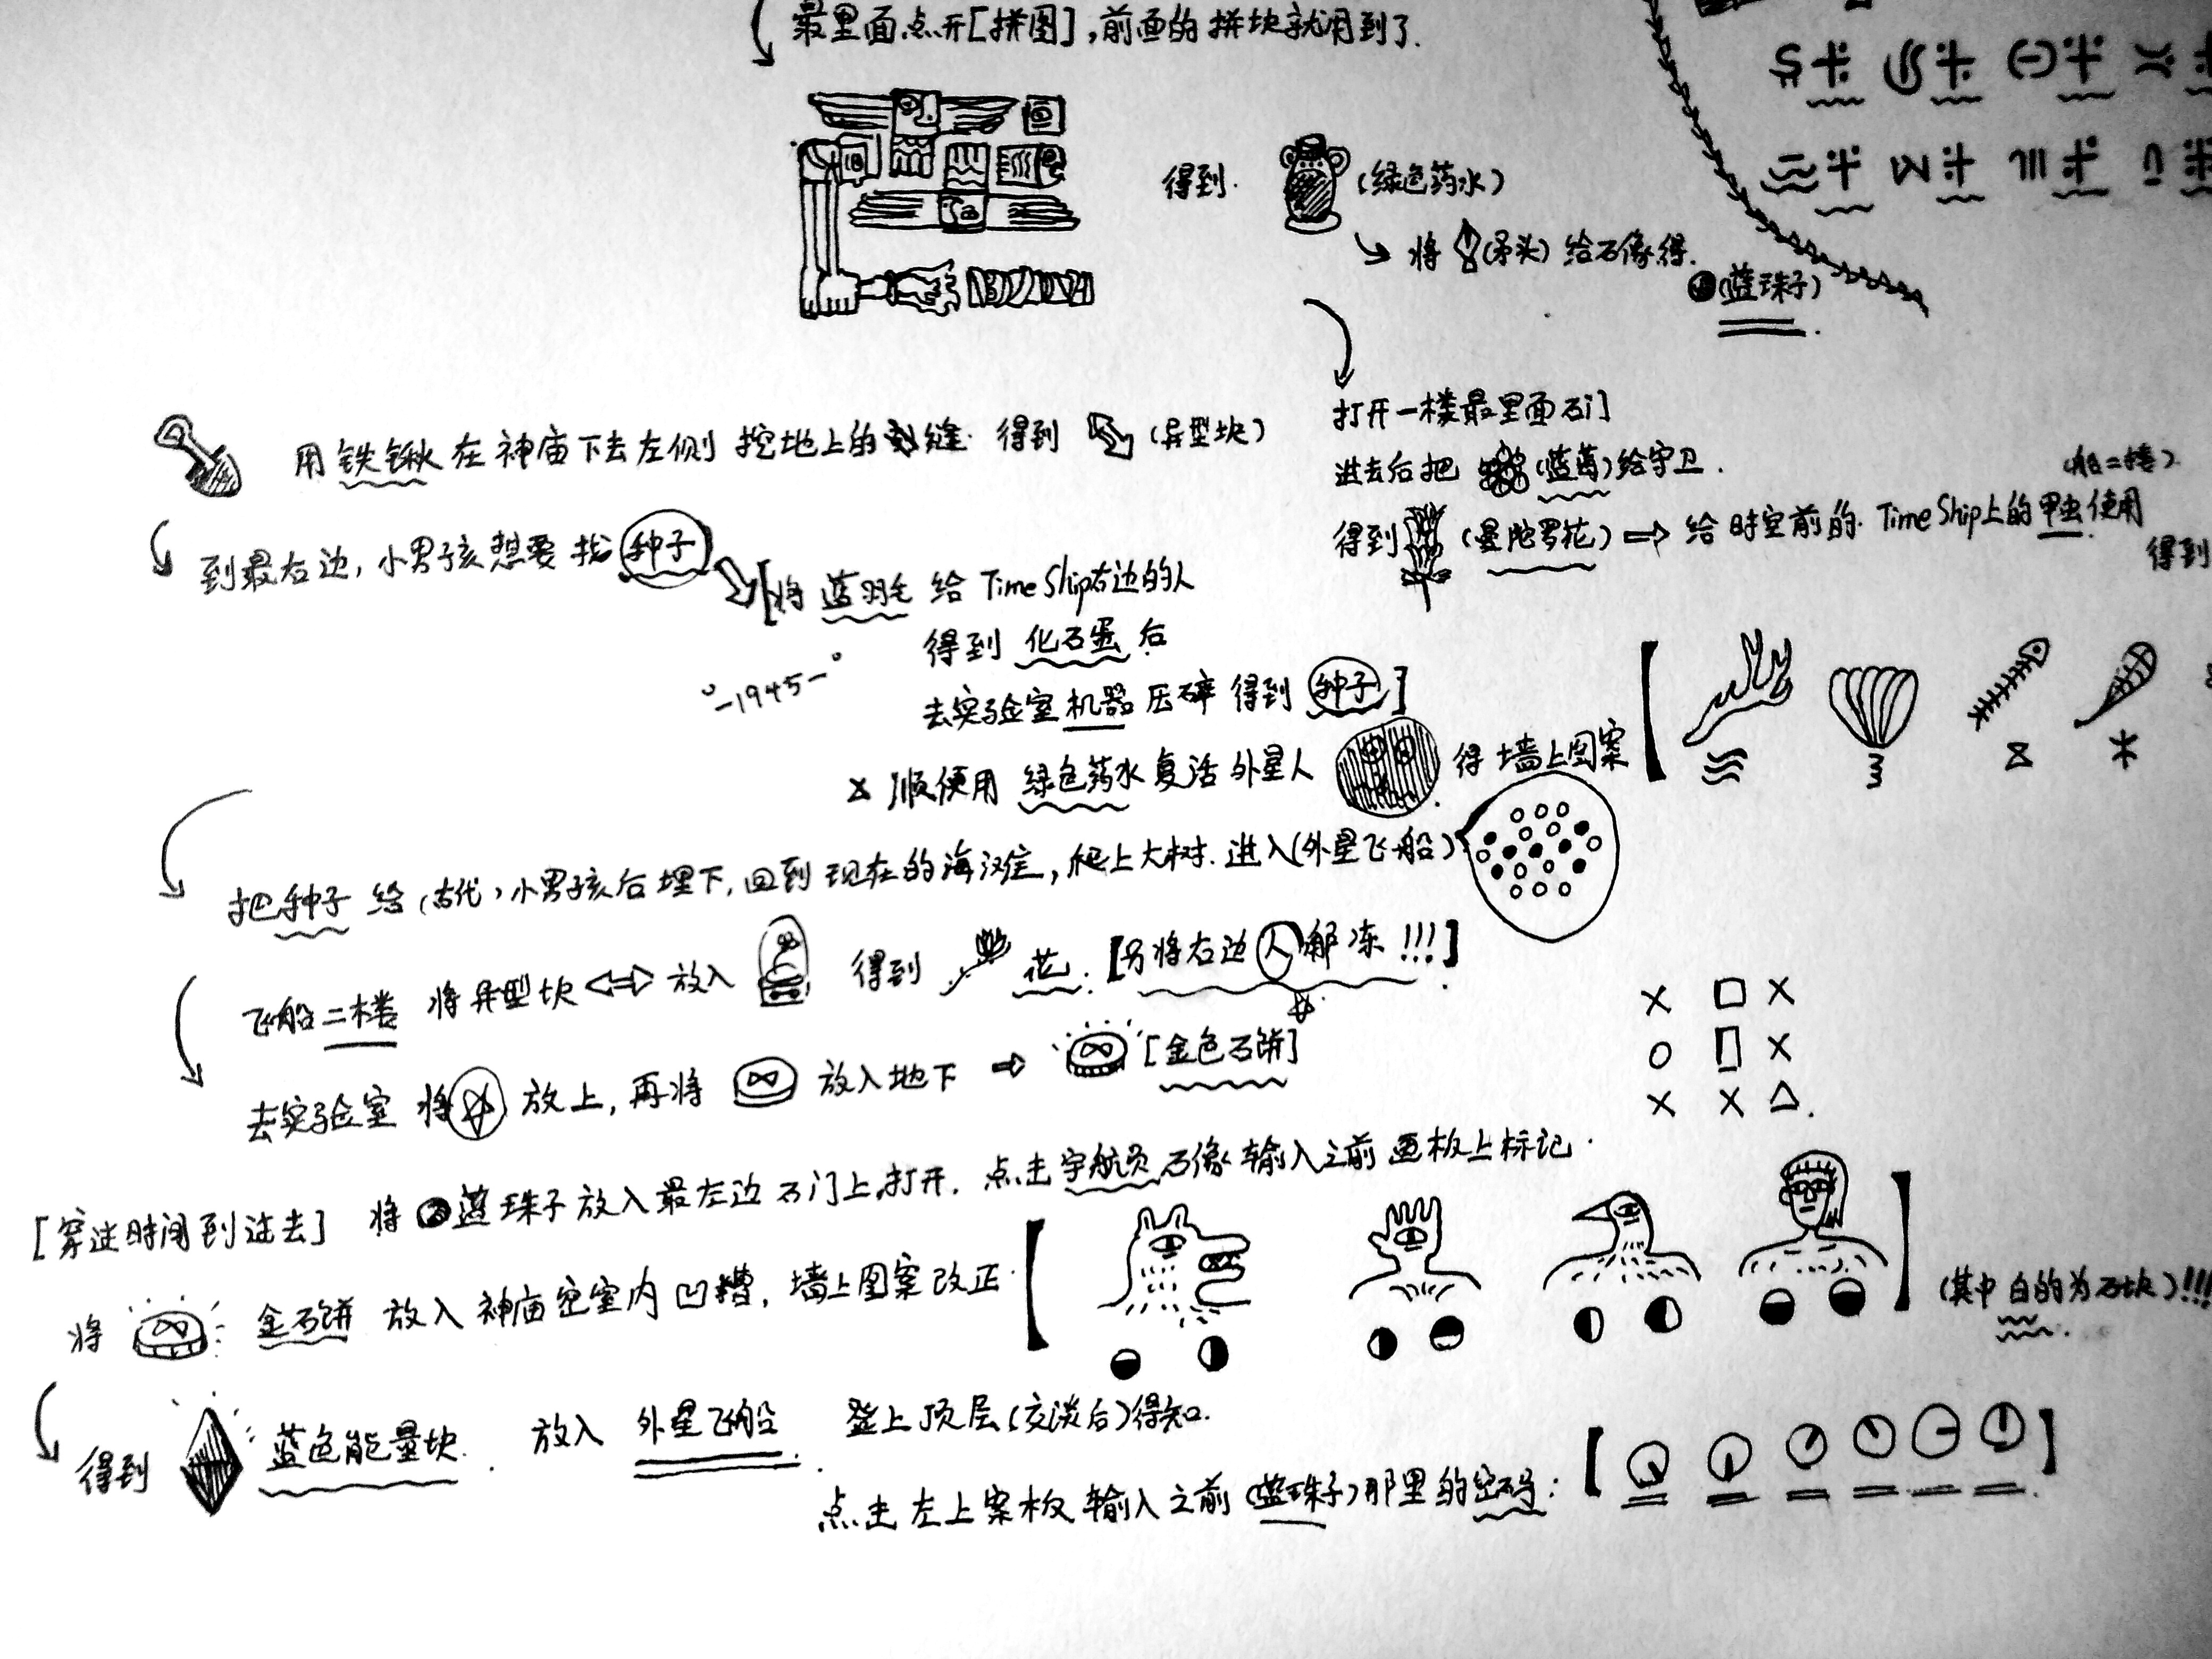 最里面点开[拼图],前面的拼块就用到了.
得到. (绿色药水)
将 (矛头) 给石像得.
(蓝珠子)
打开一楼最里面石门
进去后把 (蓝莓)给守卫.
(船二楼)
得到 (曼陀罗花) ⇒ 给时空前的 Time Ship上的甲虫使用
得到
用铁锹在神庙下去左侧 挖地上的缝 得到 (异型块)
到最右边,小男孩想要找 种子
[将 蓝羽毛 给 Time Ship右边的人
得到 化石蛋 后
-1945-
去实验室机器压碎 得到 种子]
顺便用 绿色药水复活 外星人 得墙上图案
把种子 给(古代)小男孩后埋下,回到现在的海滩,爬上大树.进入(外星飞船)
飞船二楼 将异型块 放入 得到 花. [另将右边人解冻!!!]
去实验室 将 放上,再将 放入地下 ⇒ [金色石饼]
× □ ×
○ □ ×
× × △.
[穿过时间到过去] 将 蓝珠子放入最左边石门上,打开. 点击宇航员石像输入之前画板上标记.
将 金石饼 放入神庙密室内凹槽,墙上图案改正.
(其中白的为石块)!!!
得到 蓝色能量块. 放入 外星飞船. 登上顶层(交谈后)得知.
点击左上案板 输入之前(蓝珠子)那里的密码: